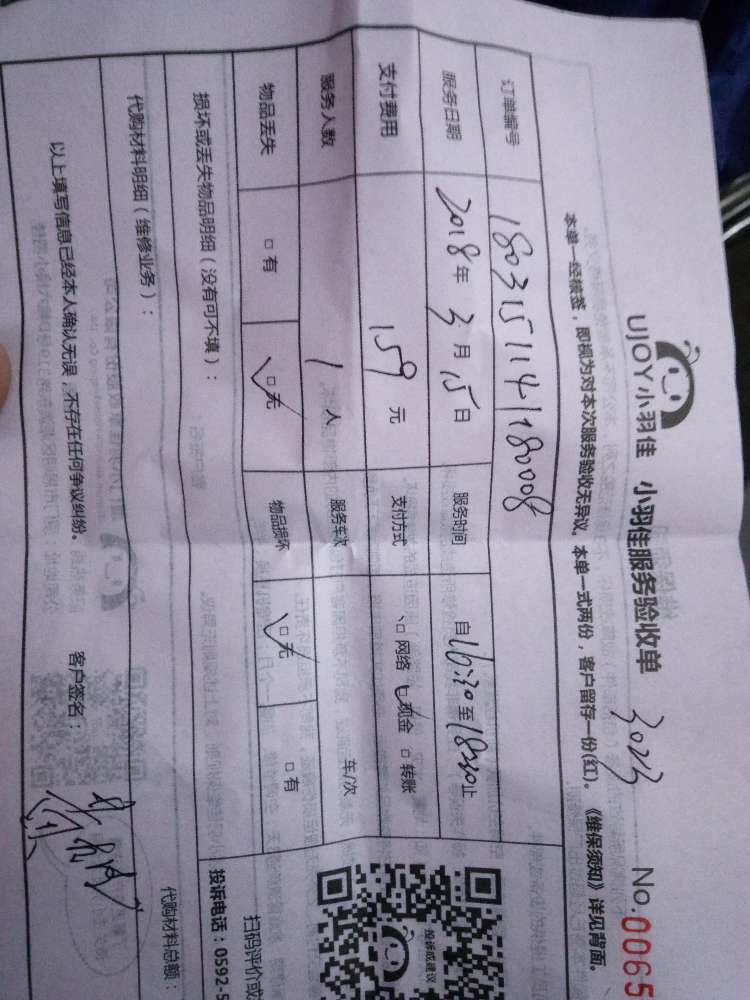 UJOY小羽佳 小羽佳服务验收单 3023 No.0065
本单一经核签，即视为对本次服务验收无异议。本单一式两份，客户留存一份(红)。《维保须知》详见背面。
订单编号 180315114118008
服务日期 2018年3月15日 服务时间 自16:30至18:30止
支付费用 159元 支付方式 □网络 □现金 □转账
服务人数 1人 服务车次 车/次
物品丢失 □有 □无 物品损坏 □无 □有
投诉或建议
扫码评价或
投诉电话：0592-5
损坏或丢失物品明细（没有可不填）：
代购材料明细（维修业务）： 代购材料总额：
以上填写信息已经本人确认无误，不存在任何争议纠纷。 客户签名：